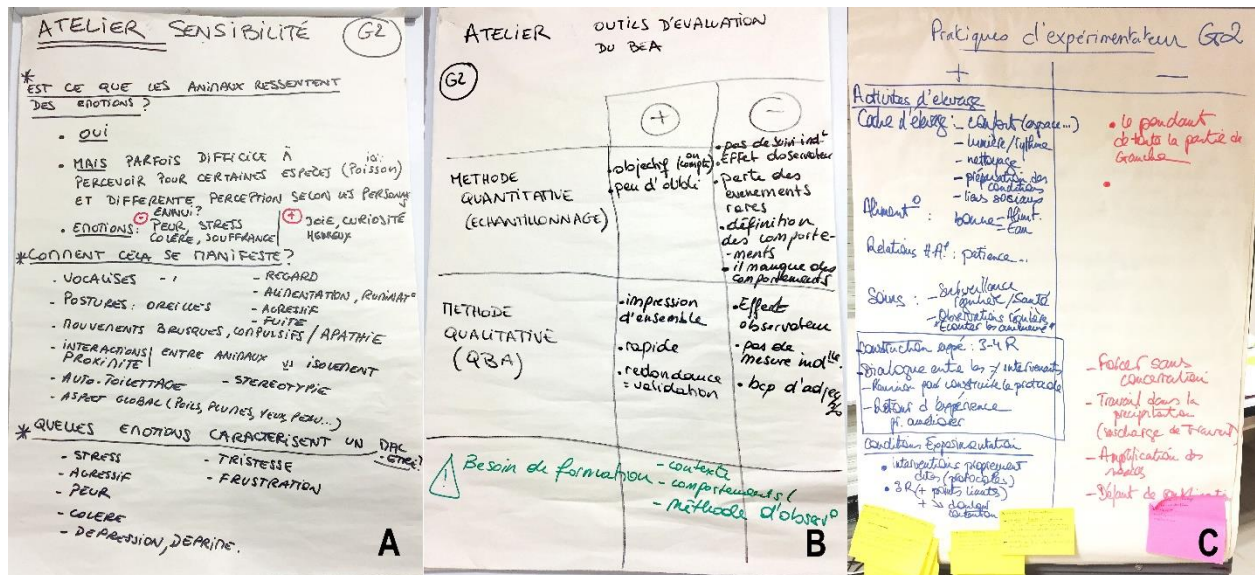 ATELIER SENSIBILITÉ G2
* EST CE QUE LES ANIMAUX RESSENTENT
DES EMOTIONS ?
• OUI
• MAIS PARFOIS DIFFICILE À
PERCEVOIR POUR CERTAINES ESPÈCES (ici: Poisson)
ET DIFFERENTE PERCEPTION SELON LES PERSONN
• EMOTIONS: - ENNUI? + JOIE, CURIOSITÉ
PEUR, STRESS HEUREUX
COLÈRE, SOUFFRANCE
* COMMENT CELA SE MANIFESTE?
- VOCALISES - REGARD
- POSTURES: OREILLES - ALIMENTATION, RUMINAT°
- AGRESSIF
- FUITE
- MOUVEMENTS BRUSQUES, COMPULSIFS / APATHIE
- INTERACTIONS | ENTRE ANIMAUX vs ISOLEMENT
PROXIMITÉ
- AUTO-TOILETTAGE - STEREOTYPIE
- ASPECT GLOBAL (POILS, PLUMES, YEUX, PEAU...)
* QUELLES EMOTIONS CARACTERISENT UN MAL-ETRE?
- STRESS - TRISTESSE
- AGRESSIF - FRUSTRATION
- PEUR
- COLERE
- DEPRESSION, DEPRIME.
A
ATELIER OUTILS D'EVALUATION
DU BEA
G2
+ -
METHODE
QUANTITATIVE
(ECHANTILLONNAGE)
• objectif (on compte)
• peu d'oubli
• pas de suivi indel
• Effet d'observateur
• perte des
évenements
rares
• définition
des comporte-
ments
• il manque des
comportements
METHODE
QUALITATIVE
(QBA)
• impression
d'ensemble
• rapide
• redondance
= validation
• Effet
observateur
• pas de
mesure indlle
• bcp d'adjec
Besoin de formation - contexte
- comportements
- méthode d'observ°
B
Pratiques d'expérimentateur G2
+ -
Activités d'élevage
Cadre d'élevage: - confort (espace...)
- lumière/rythme
- nettoyage
- préparation des
conditions
- liens sociaux
Aliment° : bonne - Alimt
- Eau
Relations H.A! : patience...
Soins: - Surveillance
régulière/Santé
- Observations régulière
"Ecouter les animaux"
- Construction expé: 3-4 R
- Dialogue entre les ≠ intervenants
- Réunion pour construire le protocole
- Retours d'expérience
pr améliorer
Conditions Expérimentation
• interventions proprement
dites (protocoles)
• 3R (+ points limites)
• le pendant
de toute la partie de
Gauche
- Forcer sans
concertation
- Travail dans la
précipitation
(surcharge de Travail)
- Amplification des
- Défaut de
C